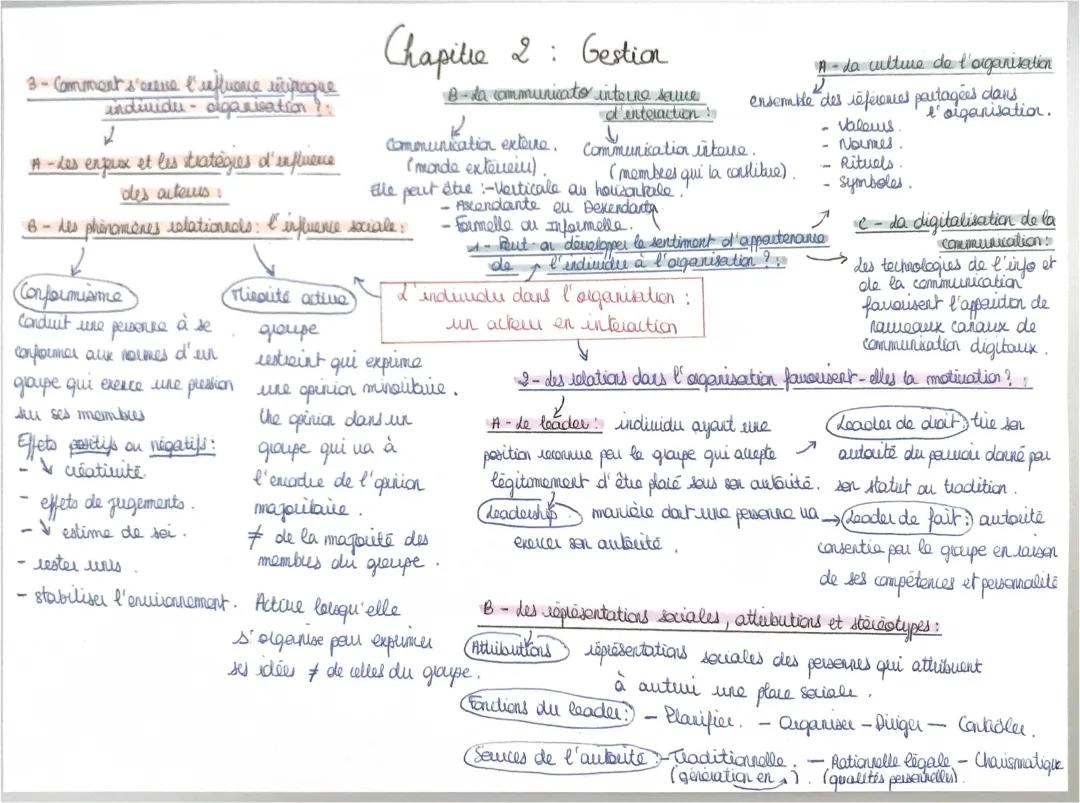 Chapitre 2 : Gestion
3 - Comment s'exerce l'influence réciproque
individu - organisation ? :
A - Les enjeux et les stratégies d'influence
des acteurs :
B - Les phénomènes relationnels : l'influence sociale :
Conformisme
Conduit une personne à se
conformer aux normes d'un
groupe qui exerce une pression
sur ses membres
Effets positifs ou négatifs :
- ↘ créativité
- effets de jugements.
- ↘ estime de soi.
- rester unis.
- stabiliser l'environnement.
Minorité active
groupe
restreint qui exprime
une opinion minoritaire.
Une opinion dans un
groupe qui va à
l'encontre de l'opinion
majoritaire.
≠ de la majorité des
membres du groupe.
Active lorsqu'elle
s'organise pour exprimer
ses idées ≠ de celles du groupe.
B - La communication interne source
d'interaction :
Communication externe.
(monde extérieur)
Communication interne.
(membres qui la constitue).
Elle peut être : - Verticale ou horizontale.
- Ascendante ou Descendante
- Formelle ou Informelle.
1 - Peut-on développer le sentiment d'appartenance
de l'individu à l'organisation ? :
L'individu dans l'organisation :
un acteur en interaction
A - La culture de l'organisation
ensemble des références partagées dans
l'organisation.
- Valeurs.
- Normes.
- Rituels.
- Symboles.
C - La digitalisation de la
communication :
Les technologies de l'info et
de la communication
favorisent l'apparition de
nouveaux canaux de
communication digitaux.
2 - Les relations dans l'organisation favorisent-elles la motivation ? :
A - Le leader : individu ayant une
position reconnue par le groupe qui accepte
légitimement d'être placé sous son autorité.
Leadership manière dont une personne va
exercer son autorité.
Leader de droit : tire son
autorité du pouvoir donné par
son statut ou tradition.
Leader de fait : autorité
consentie par le groupe en raison
de ses compétences et personnalité
B - Les représentations sociales, attributions et stéréotypes :
Attributions représentations sociales des personnes qui attribuent
à autrui une place sociale.
Fonctions du leader : - Planifier. - Organiser - Diriger - Contrôler.
Sources de l'autorité : - Traditionnelle. - Rationnelle légale - Charismatique
(génération en ↗). (qualités personnelles).